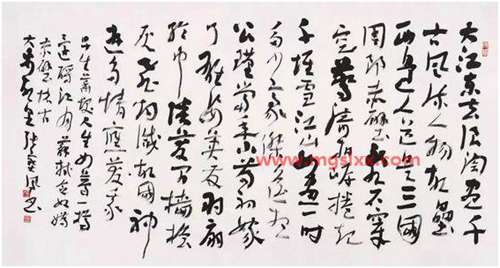 大江东去浪淘尽千
古风流人物故垒
西边人道是三国
周郎赤壁乱石穿
空惊涛拍岸卷起
千堆雪江山如画一时
多少豪杰遥想
公瑾当年小乔初嫁
了雄姿英发羽扇
纶巾谈笑间樯橹
灰飞烟灭故国神
游多情应笑我
早生华发人生如梦一樽
还酹江月苏轼念奴娇
赤壁怀古